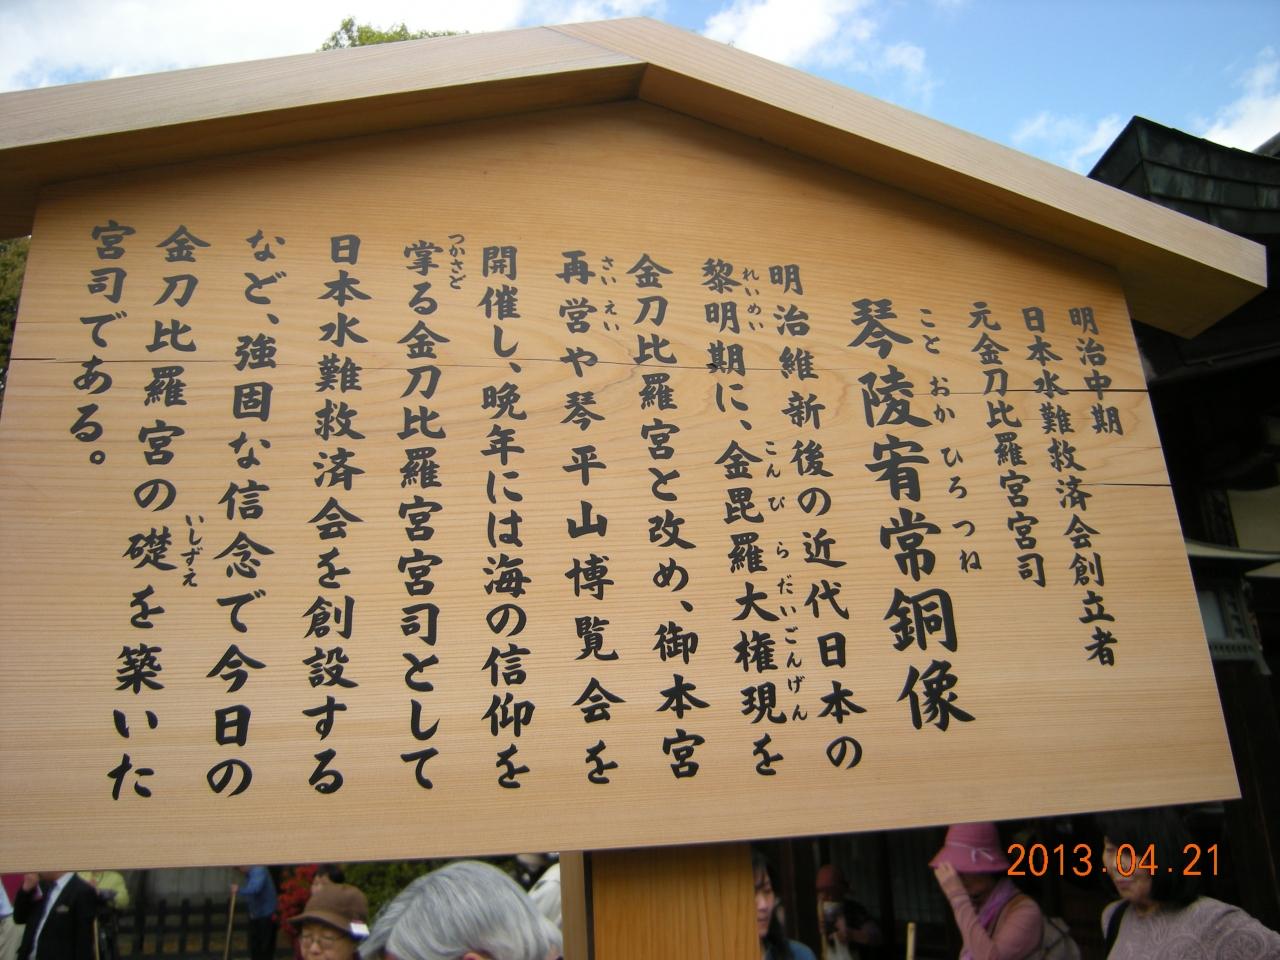 明治中期
日本水難救済会創立者
元金刀比羅宮宮司
ことおかひろつね
琴陵宥常銅像
明治維新後の近代日本の
れいめい
黎明期に、金毘羅大権現を
こんぴらだいごんげん
金刀比羅宮と改め、御本宮
さいえい
再営や琴平山博覧会を
開催し、晩年には海の信仰を
つかさど
掌る金刀比羅宮宮司として
日本水難救済会を創設する
など、強固な信念で今日の
いしずえ
金刀比羅宮の礎を築いた
宮司である。
2013.04.21